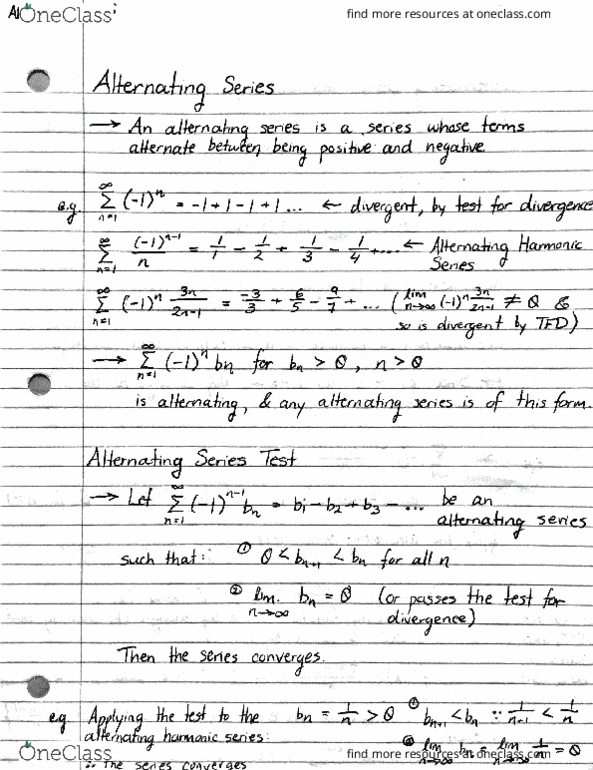 Al OneClass i
find more resources at oneclass.com
Alternating Series
→ An alternating series is a series whose terms
alternate between being positive and negative
e.g. ∞ Σ n=1 (-1)^n = -1+1-1+1... ← divergent, by test for divergence
∞ Σ n=1 (-1)^(n-1)/n = 1/1 - 1/2 + 1/3 - 1/4 +... ← Alternating Harmonic
Series
∞ Σ n=1 (-1)^n 3n/(2n-1) = -3/3 + 6/5 - 9/7 + ... (lim n→∞ (-1)^n 3n/(2n-1) ≠ 0 &
so is divergent by TFD)
→ ∞ Σ n=1 (-1)^n bn for bn > 0, n > 0
is alternating, & any alternating series is of this form.
Alternating Series Test
→ Let ∞ Σ n=1 (-1)^(n-1) bn = b1 - b2 + b3 - ... be an
alternating series
such that: ① 0 < bn+1 < bn for all n
② lim n→∞ bn = 0 (or passes the test for
divergence)
Then the series converges.
e.g. Applying the test to the bn = 1/n > 0 ① bn+1 < bn ∵ 1/(n+1) < 1/n
alternating harmonic series: ② lim n→∞ bn = lim n→∞ 1/n = 0
OneClass
find more resources at oneclass.com
∴ The series converges